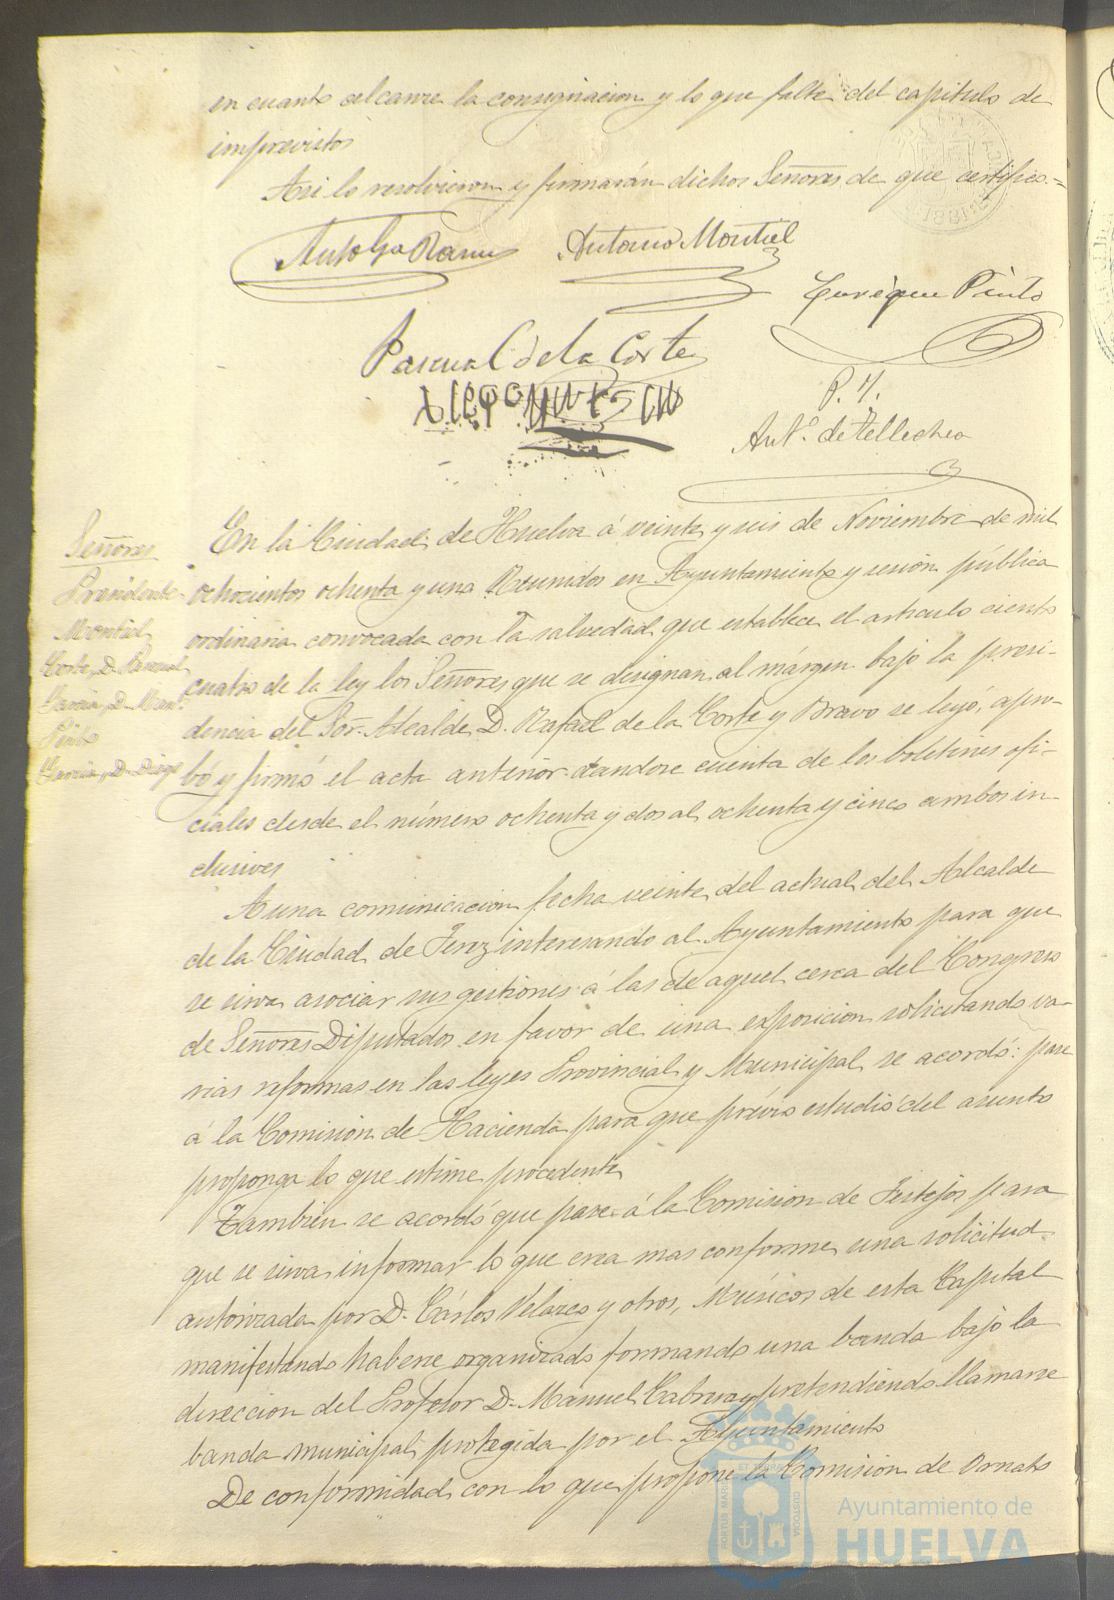 en cuanto alcance la consignacion y lo que falte del capitulo de
imprevistos
Asi lo resolvieron y firmarán dichos Señores de que certifico.=
Antº Gª Ramos Antonio Montiel
Enrique Pinto
Pascual C de la Corte
P. Y.
Antº. de Tellechea
Señores
Presidente
Montiel
Corte, D. Pascual
Garcia, D. Man.
Pinto
Garcia, D. Diego
En la Ciudad de Huelva á veinte y seis de Noviembre de mil
ochocientos ochenta y una Reunidos en Ayuntamiento y sesion pública
ordinaria convocada con la salvedad que establece el articulo ciento
cuatro de la ley los Señores que se designan al márgen bajo la presi-
dencia del Sor. Alcalde D. Rafael de la Corte y Bravo se leyó, apro-
bó y firmó el acta anterior dandose cuenta de los boletines ofi-
ciales desde el número ochenta y dos al ochenta y cinco ambos in-
clusives
A una comunicacion fecha veinte del actual del Alcalde
de la Ciudad de Jerez interesando al Ayuntamiento para que
se sirva asociar sus gestiones á las de aquel cerca del Congreso
de Señores Diputados en favor de una exposicion solicitando va-
rias reformas en las leyes Provincial y Municipal se acordó: pase
á la Comision de Hacienda para que prévio estudio del asunto
proponga lo que estime procedente
Tambien se acordó que pase á la Comision de Festejos para
que se sirva informar lo que crea mas conforme una solicitud
autorizada por D. Cárlos Velazco y otros, Músicos de esta Capital
manifestando haberse organizado formando una banda bajo la
direccion del Profesor D. Manuel Cabrera y pretendiendo llamarse
banda municipal protegida por el Ayuntamiento
De conformidad con lo que propone la Comision de Ornato
PORTUS MARIS ET TERRAE CUSTODIA
Ayuntamiento de
HUELVA